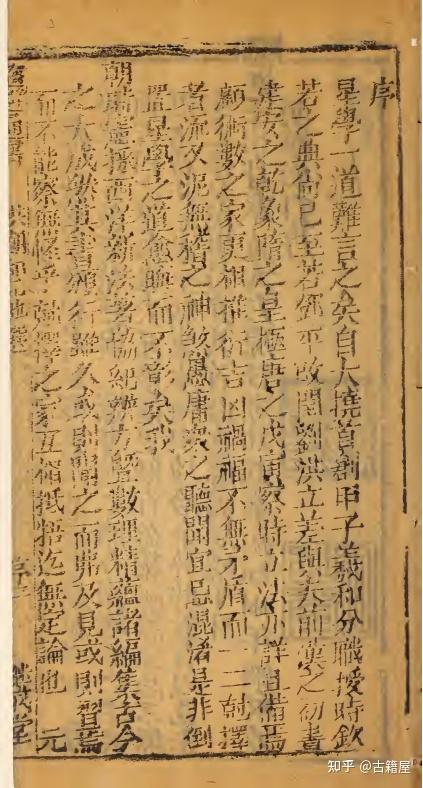 序
星學一道難言之矣自大撓首創甲子羲和分職授時欽
若之典尚已至若鄧平改閏劉洪立差與夫前漢之
建安之乾象隋之皇極唐之戊寅察時立法亦詳且備焉
顧術數之家更相推衍吉凶禍福不無矛盾而一二執擇
者流又泥無稽之神煞愚庸衆之聽聞宜忌混淆是非倒
置星學之道愈晦而不彰矣我
朝時憲採西洋新法著協紀辨方暨數理精蘊諸編集古今
之大成其書頒行雖久或則聞之而弗及見或則習焉
而不能察無怪乎之家互相牴牾迄無定論也 元
知乎 @古籍屋